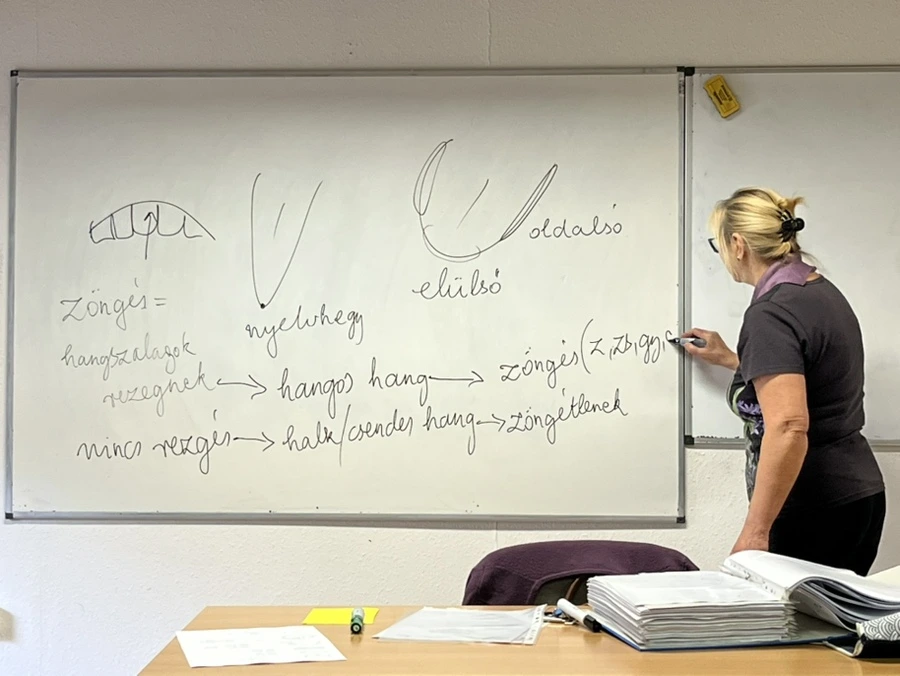 oldalsó
elülső
nyelvhegy
zöngés=
hangszalagok
rezegnek → hangos hang → zöngés (z, zs, gy,
nincs rezgés → halk/csendes hang → zöngétlenek